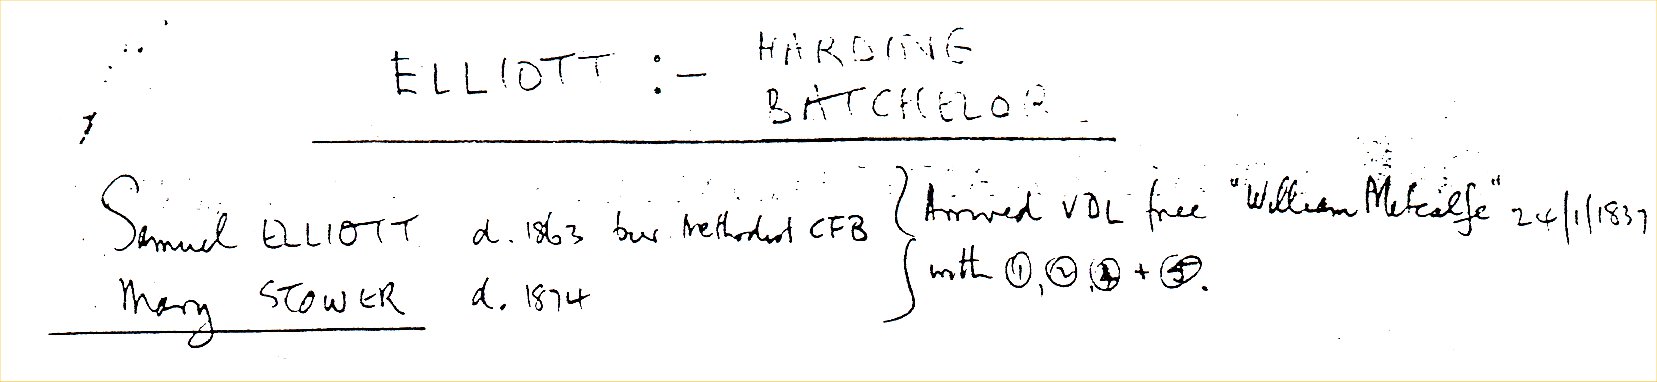 ELLIOTT :- HARDING
BATCHELOR.
Samuel ELLIOTT d. 1863 bur Methodist CFB { Arrived VDL free "William Metcalfe" 24/1/1837
Mary STOWER d. 1874 with ①, ②, ④ + ⑤.